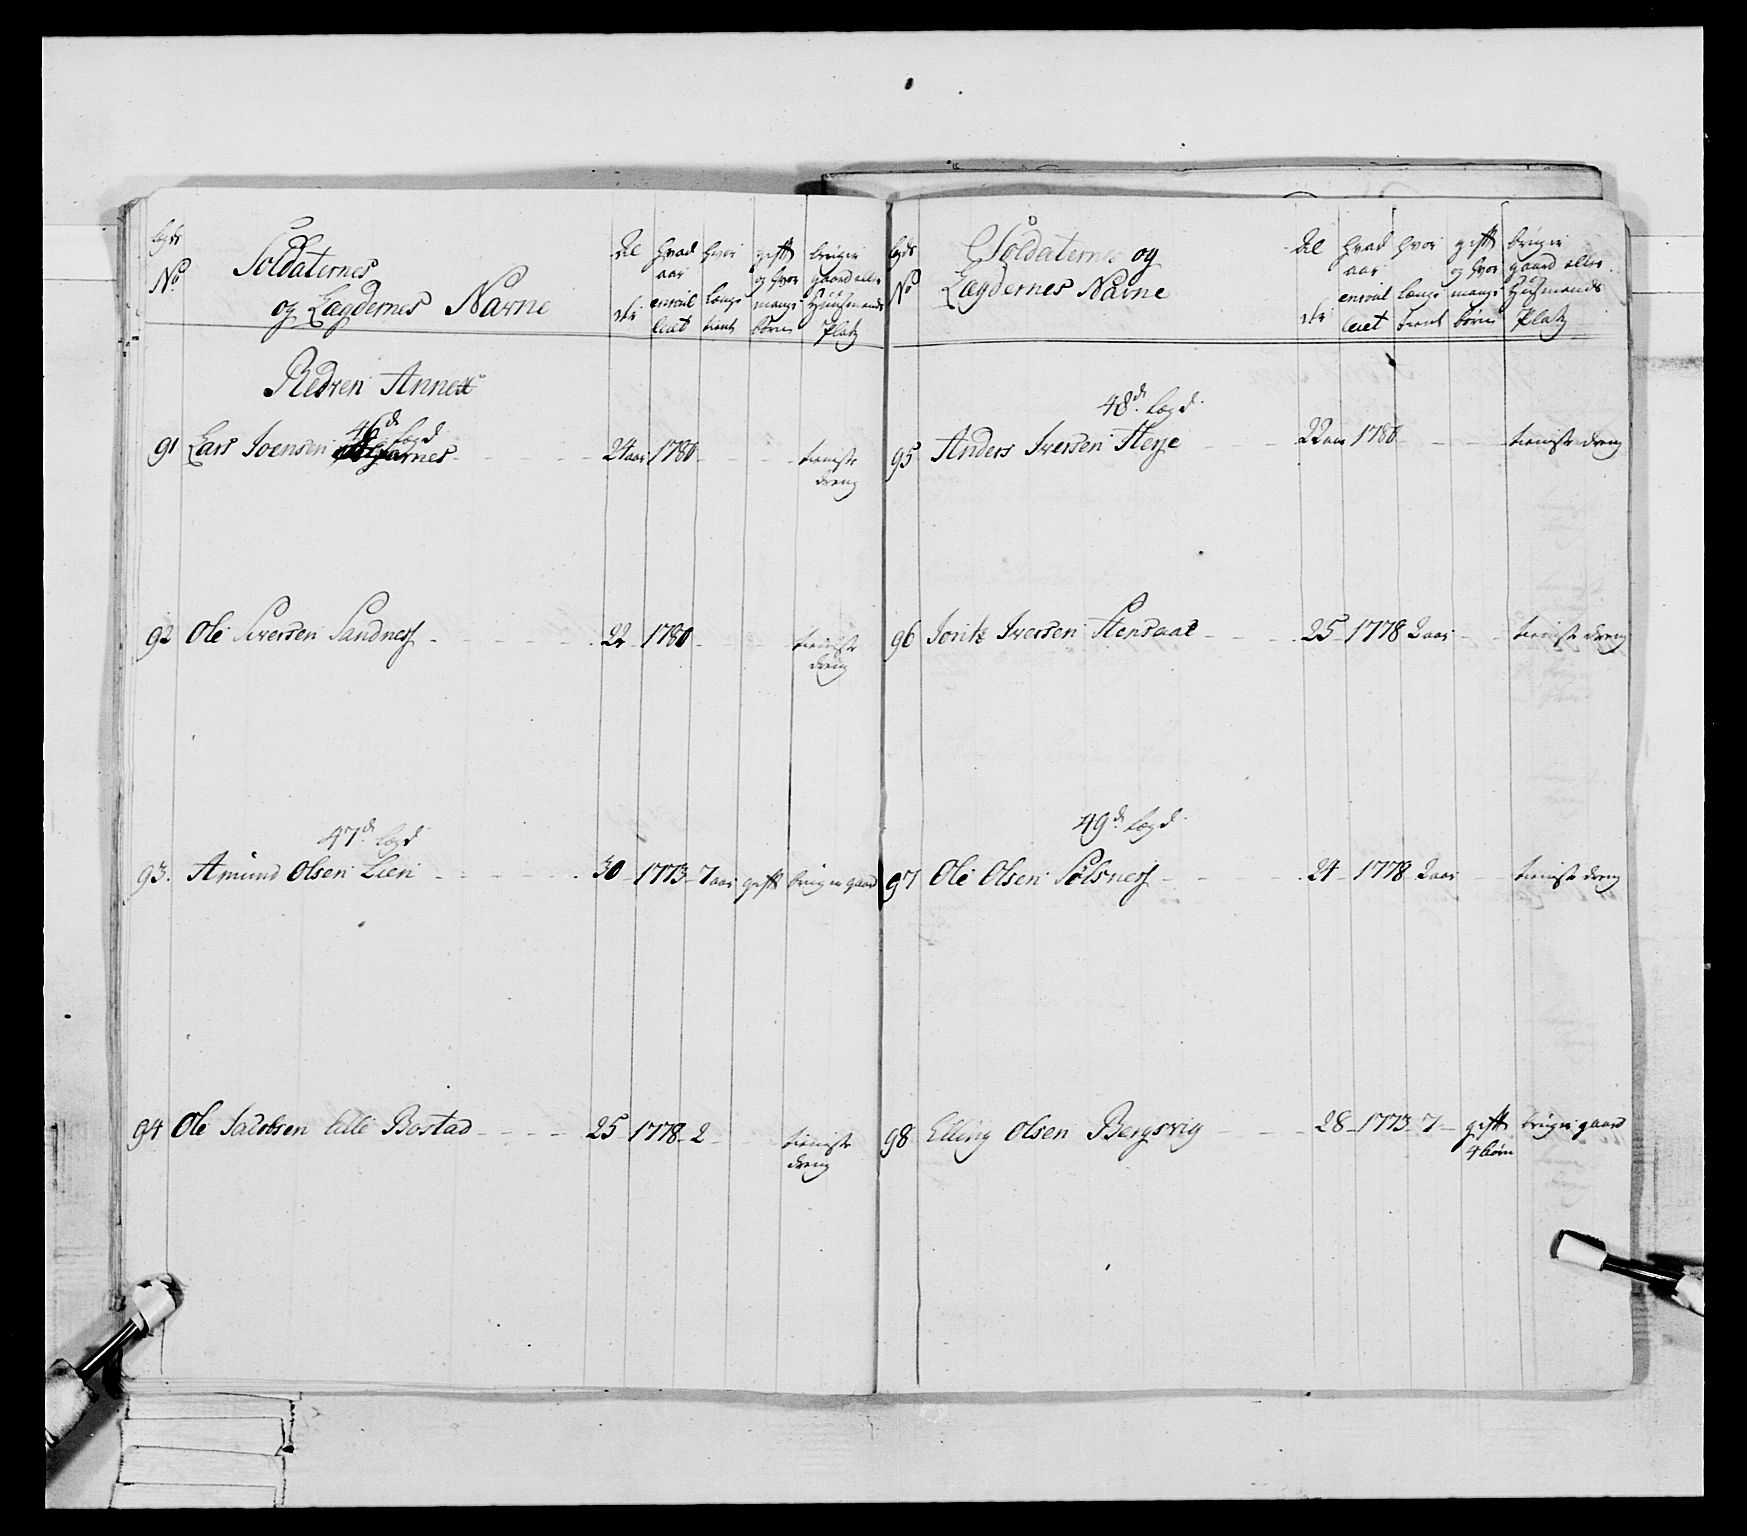 Lægds No Soldaternes og Lægdernes Navne Al der hvad aar enroul leret hvor længe tient gift og hvor mange børn bruger gaard eller Huusmands Platz
Redven Annex
46de Lægd
91 Lars Joensen 24 aar 1780 tieniste dreng
92 Ole Iversen Sandness 22 1780 tieniste dreng
47de Lægd
93. Amund Olsen Lien 30 1773 7 aar gift bruger gaard
94 Ole Jacobsen lille Bostad 25 1778 2 tieniste dreng
Lægds No Soldaternes og Lægdernes Navne Al der hvad aar enroul leret hvor længe tient gift og hvor mange børn bruger gaard eller Huusmands Platz
48de Lægd
95 Anders Iversen Herje 22 aar 1780 tieniste dreng
96 Iversen 25 1778 2 aar tieniste dreng
49de Lægd
97 Ole Olsen Sølsness 24 1778 2 aar tieniste dreng
98 Elling Olsen Bergsvig 28 1773 7 gift 4 børn bruger gaard